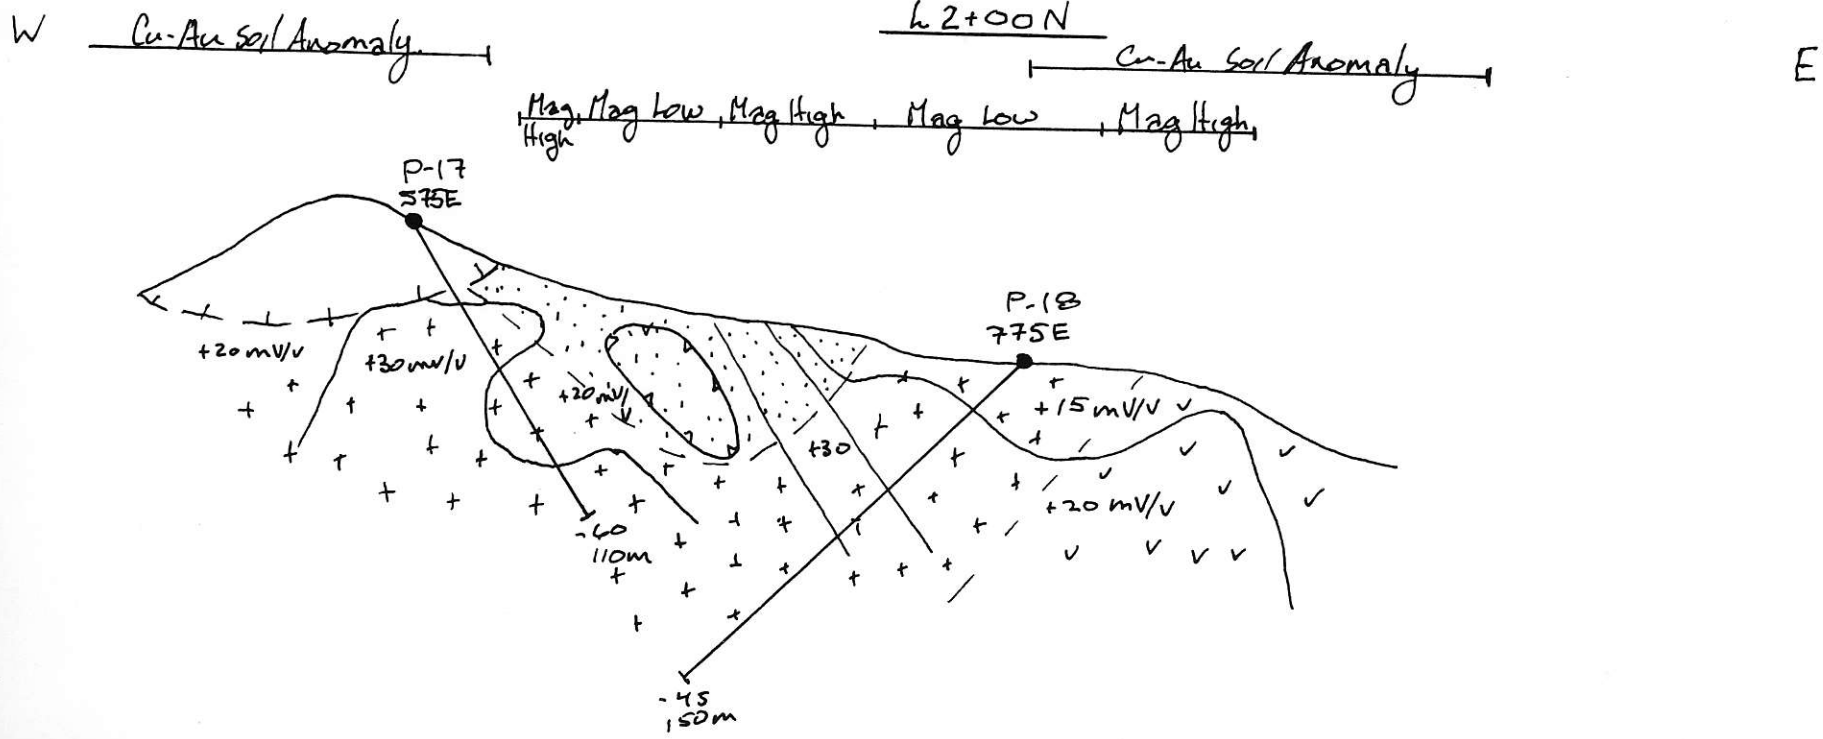 W
Cu-Au Soil Anomaly
L 2+00N
Cu-Au Soil Anomaly
E
Mag High
Mag Low
Mag High
Mag Low
Mag High
P-17
575E
P-18
775E
+20mV/v
+30mV/v
+20mV/v
+30
+15mV/v
+20mV/v
-60
110m
-45
150m